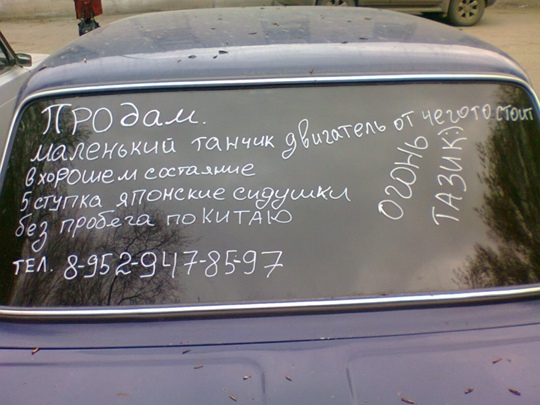 ПРОДАМ.
маленький танчик двигатель от чегото стоит
в хорошем состаяние
5 ступка японские сидушки
без пробега по КИТАЮ
ТЕЛ. 8-952-947-85-97
ОГОНЬ
ТАЗИК:)